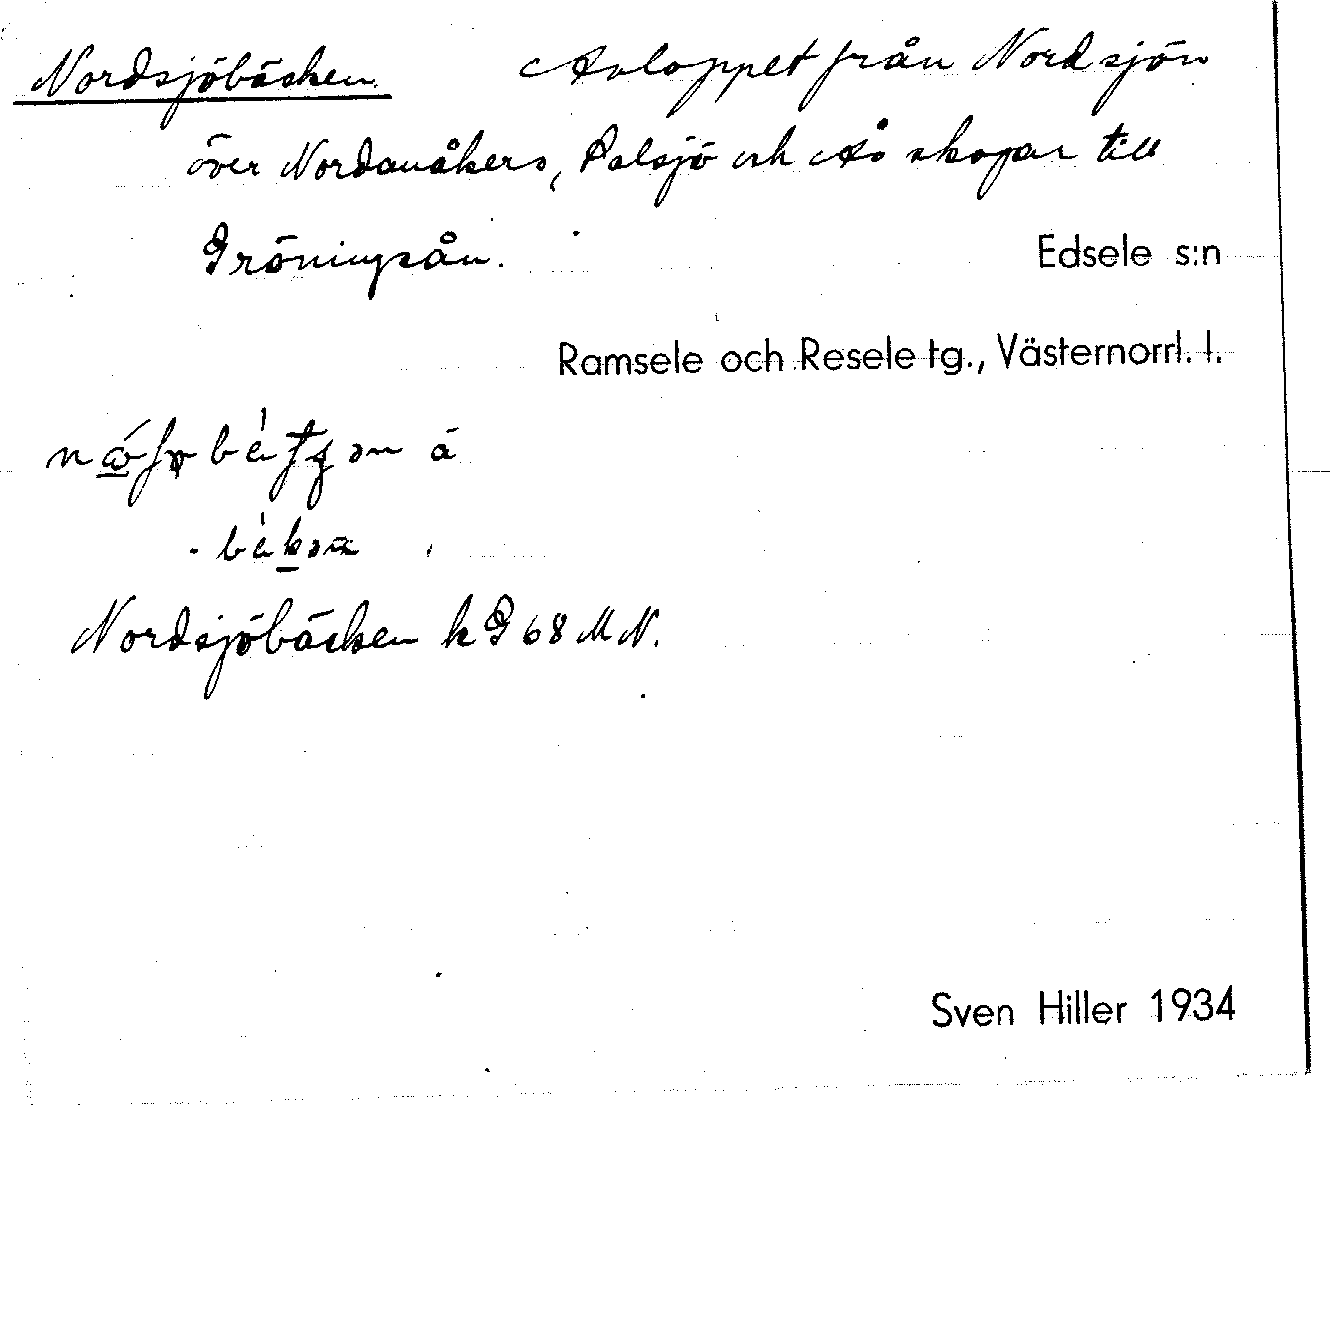 Nordsjöbäcken. Avloppet från Nordsjön
över Nordanåkers, Palsjö och Ås skogar till
Gröningsån. Edsele s:n
Ramsele och Resele tg., Västernorrl. l.
Nordsjöbäcken k G 68 M N.
Sven Hiller 1934